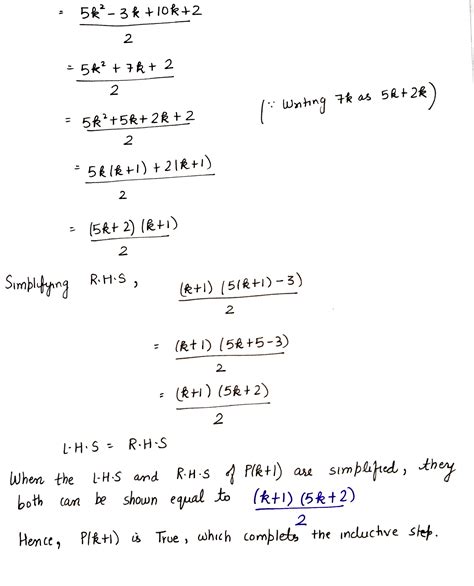 = 5k² - 3k + 10k + 2 / 2
= 5k² + 7k + 2 / 2
= 5k² + 5k + 2k + 2 / 2 (∵ Writing 7k as 5k + 2k)
= 5k(k+1) + 2(k+1) / 2
= (5k+2) (k+1) / 2
Simplifying R.H.S, (k+1) (5(k+1) - 3) / 2
= (k+1) (5k+5-3) / 2
= (k+1) (5k+2) / 2
L.H.S = R.H.S
When the L.H.S and R.H.S of P(k+1) are simplified, they
both can be shown equal to (k+1) (5k+2) / 2
Hence, P(k+1) is True, which completes the inductive step.